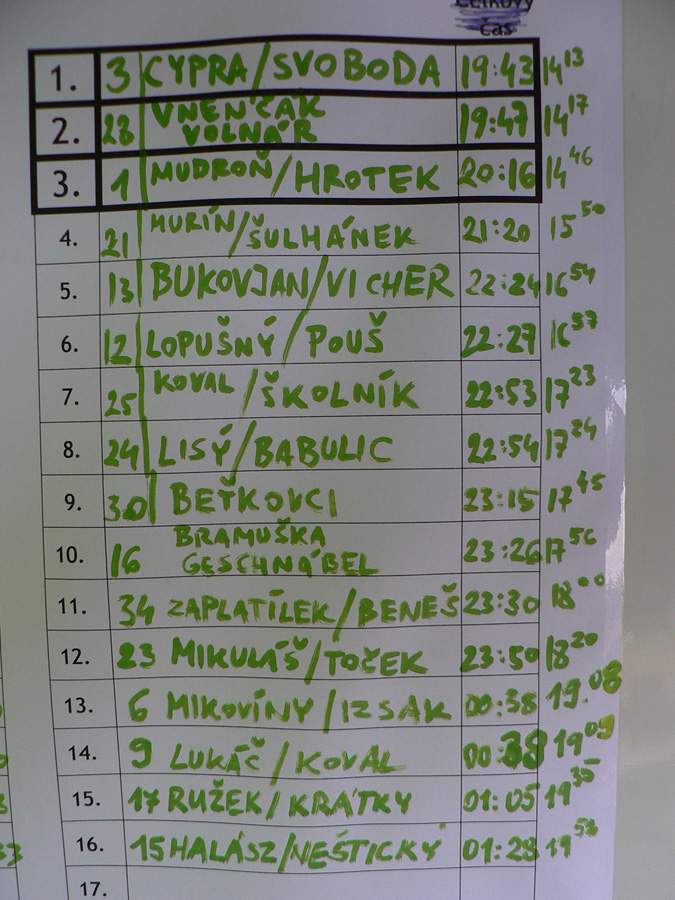 Celkový
čas
1. 3 CYPRA/SVOBODA 19:43 14 13
2. 28 VNENČÁK VOLNÁR 19:47 14 17
3. 1 MUDROŇ/HROTEK 20:16 14 46
4. 21 MURÍN/ŠULHÁNEK 21:20 15 50
5. 13 BUKOVJAN/VICHER 22:24 16 54
6. 12 LOPUŠNÝ/POUŠ 22:27 16 57
7. 25 KOVAL/ŠKOLNÍK 22:53 17 23
8. 24 LISÝ/BABULIC 22:54 17 24
9. 30 BEŤKOVCI 23:15 17 45
10. 16 BRAMUŠKA GESCHNÁBEL 23:26 17 56
11. 34 ZAPLATÍLEK/BENEŠ 23:30 18 00
12. 23 MIKULÁŠ/TOČEK 23:50 18 20
13. 6 MIKOVÍNY/IZSAK 00:38 19.08
14. 9 LUKÁČ/KOVAL 00:38 19 09
15. 17 RUŽEK/KRÁTKY 01:05 19 35
16. 15 HALÁSZ/NEŠTICKÝ 01:28 19 58
17.